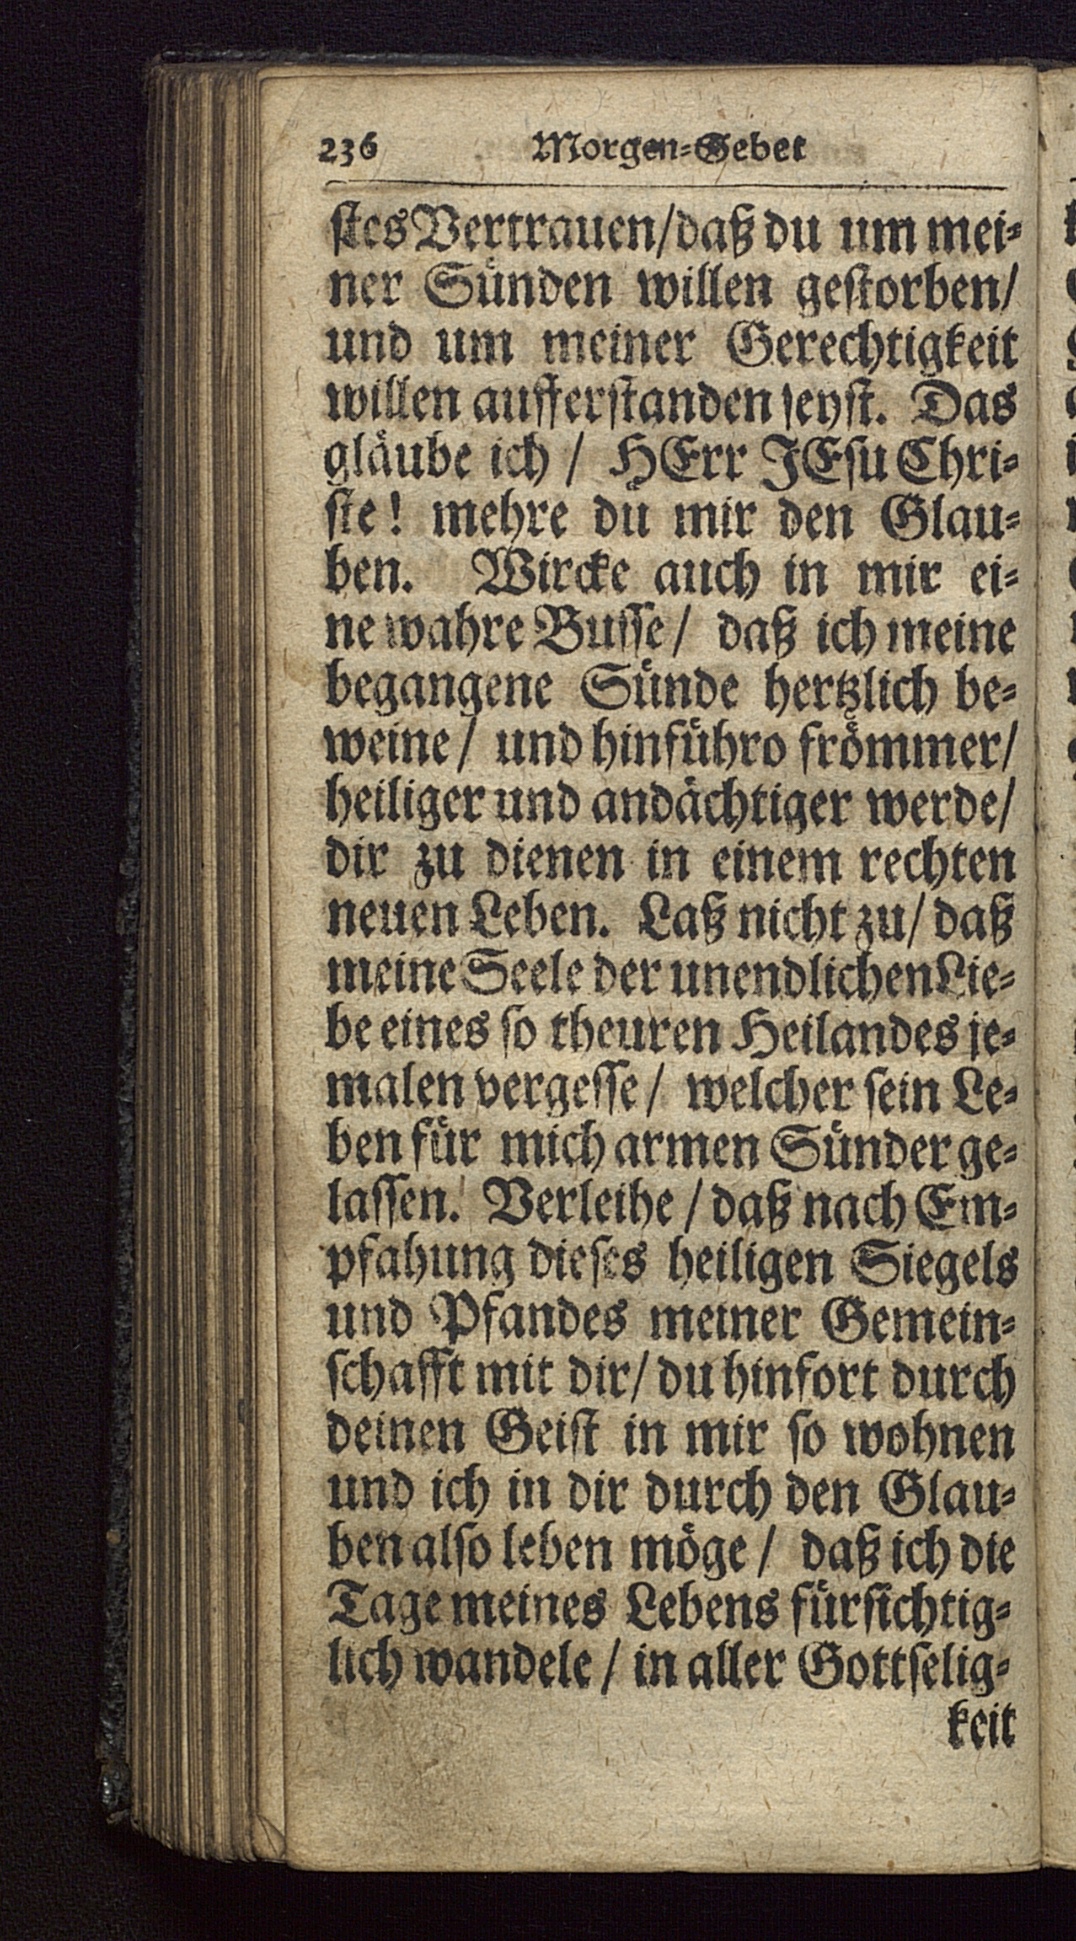 236 Morgen-Gebet
stes Vertrauen/daß du um mei-
ner Sünden willen gestorben/
und um meiner Gerechtigkeit
willen aufferstanden seyst. Das
gläube ich / HErr JEsu Chri-
ste! mehre du mir den Glau-
ben. Wircke auch in mir ei-
ne wahre Busse / daß ich meine
begangene Sünde hertzlich be-
weine / und hinführo frömmer/
heiliger und andächtiger werde/
dir zu dienen in einem rechten
neuen Leben. Laß nicht zu/ daß
meine Seele der unendlichen Lie-
be eines so theuren Heilandes je-
malen vergesse / welcher sein Le-
ben für mich armen Sünder ge-
lassen. Verleihe / daß nach Em-
pfahung dieses heiligen Siegels
und Pfandes meiner Gemein-
schafft mit dir/ du hinfort durch
deinen Geist in mir so wohnen
und ich in dir durch den Glau-
ben also leben möge / daß ich die
Tage meines Lebens fürsichtig-
lich wandele / in aller Gottselig-
keit